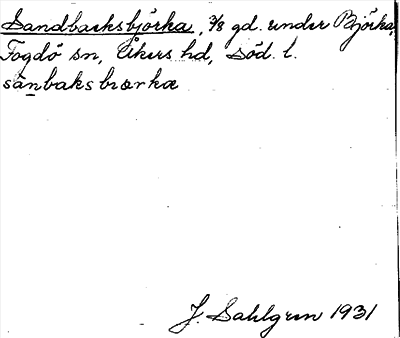 Sandbacksbjörka, 3/8 gd. under Björka,
Fogdö sn, Åkers hd, Söd. l.
sànbaks bıœrkœ
J. Sahlgren 1931